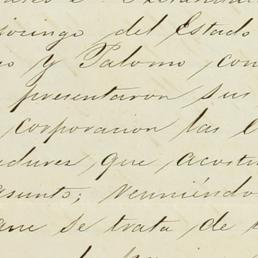 domingo del Estado
y Palomo, con
presentaron sus
corporaron las
que acostu
asunto; reuniéndo
que se trata de